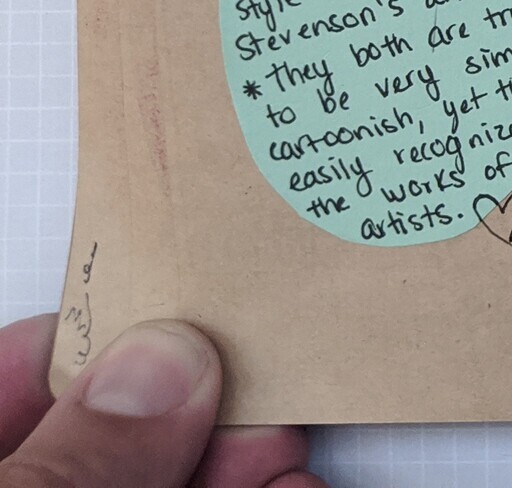 style
Stevenson's
* they both are
to be very
cartoonish, yet
easily
the works of
artists.